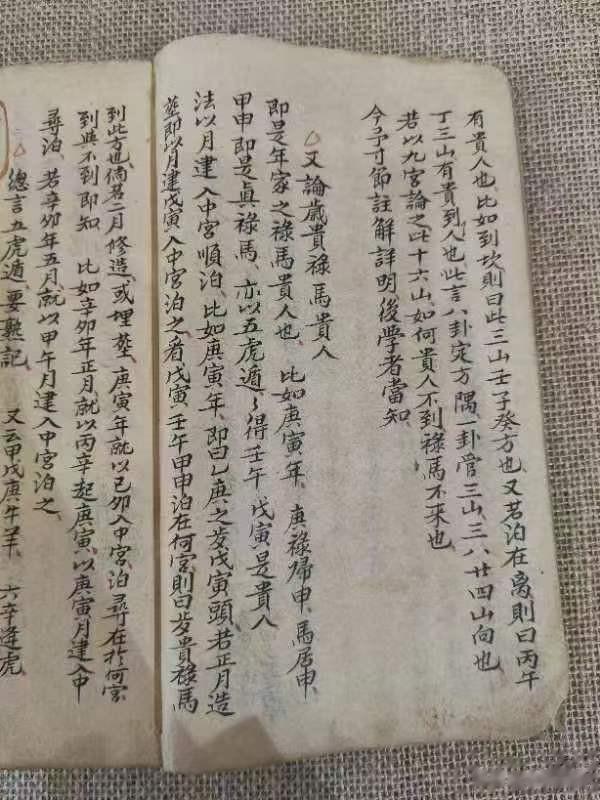 有貴人也、比如到坎則曰此三山壬子癸方也、又若泊在離則曰丙午
丁三山有貴到人也、此言八卦定方隅、一卦管三山、三八廿四山向也、
若以九宮論之、此十六山、如何貴人不到祿馬不來也、
今予寸節註解詳明後學者當知、
又論歲貴祿馬貴人
即是年家之祿馬貴人也、比如庚寅年、庚祿歸申、馬居申、
甲申即是真祿馬、亦以五虎遁〻得壬午戊寅是貴人
法以月建入中宮順泊、比如庚寅年、即曰乙庚之岁戊寅頭、若正月造
塟即以月建戊寅入中宮泊之、看戊寅、壬午甲申泊在何宮、則曰岁貴祿馬
到此方也、倘若二月修造、或埋塟、庚寅年就以己卯入中宮、泊尋在於何宮
到與不到即知、比如辛卯年正月、就以丙辛起庚寅、以庚寅月建入中
尋泊、若辛卯年五月、就以甲午月建入中宮泊之、
總言五虎遁、要熟記 又云甲戊庚牛羊、六辛逢虎